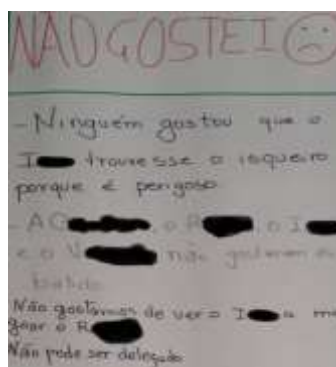 NÃO GOSTEI
- Ninguém gostou que o
I trouxesse o isqueiro
porque é perigoso.
- A C o R o I
e o V não gostaram
Não gostamos de ver o I a
o R
Não pode ser delegado